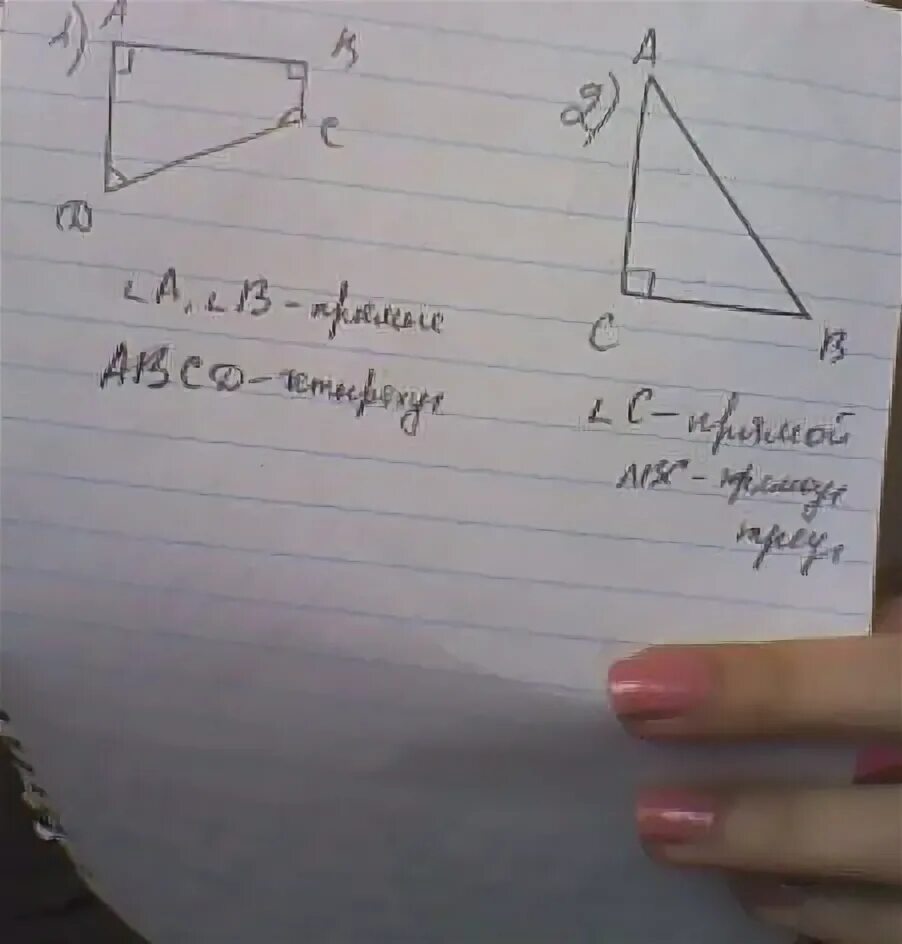 1)
A
B
C
D
∠A, ∠B - прямые
ABCD - четырехуг.
2)
A
C
B
∠C - прямой
ABC - прямоуг.
треуг.